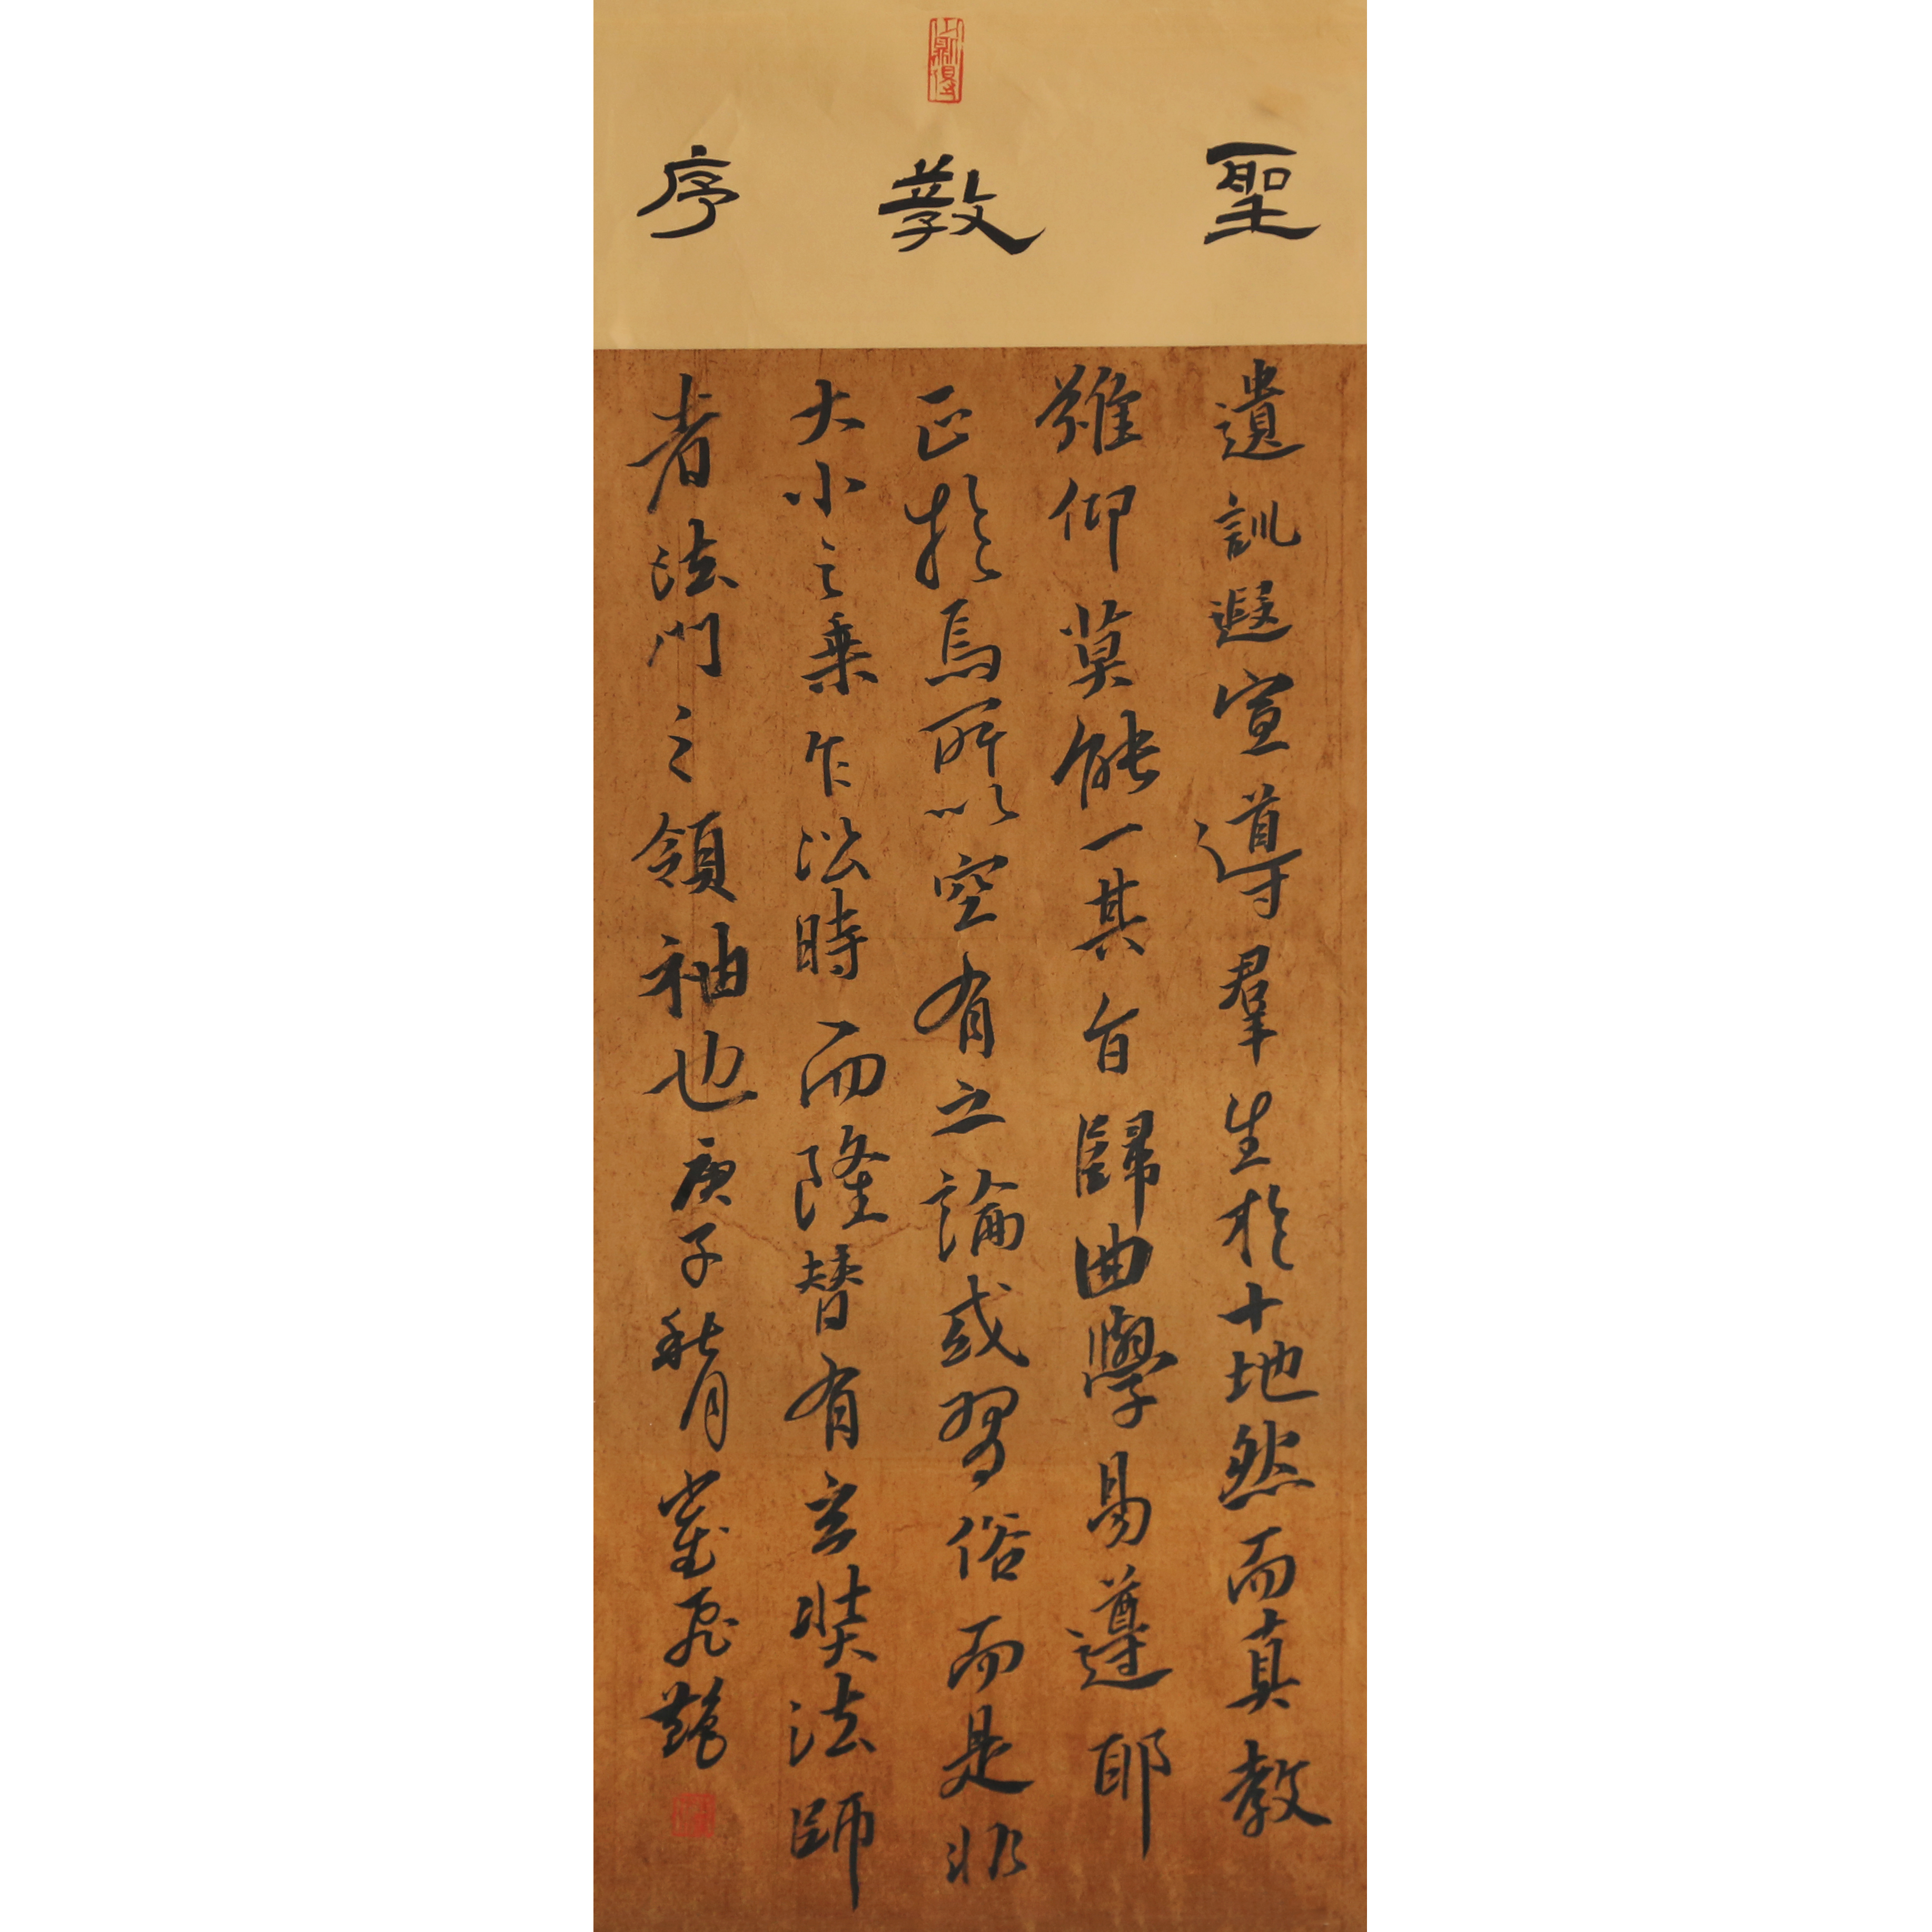 聖教序
遺訓遐宣導羣生於十地然而真教
難仰莫能一其旨歸曲學易遵耶
正於焉所以空有之論或習俗而是非
大小之乘乍沿時而隆替有玄奘法師
者法門之領袖也庚子秋月